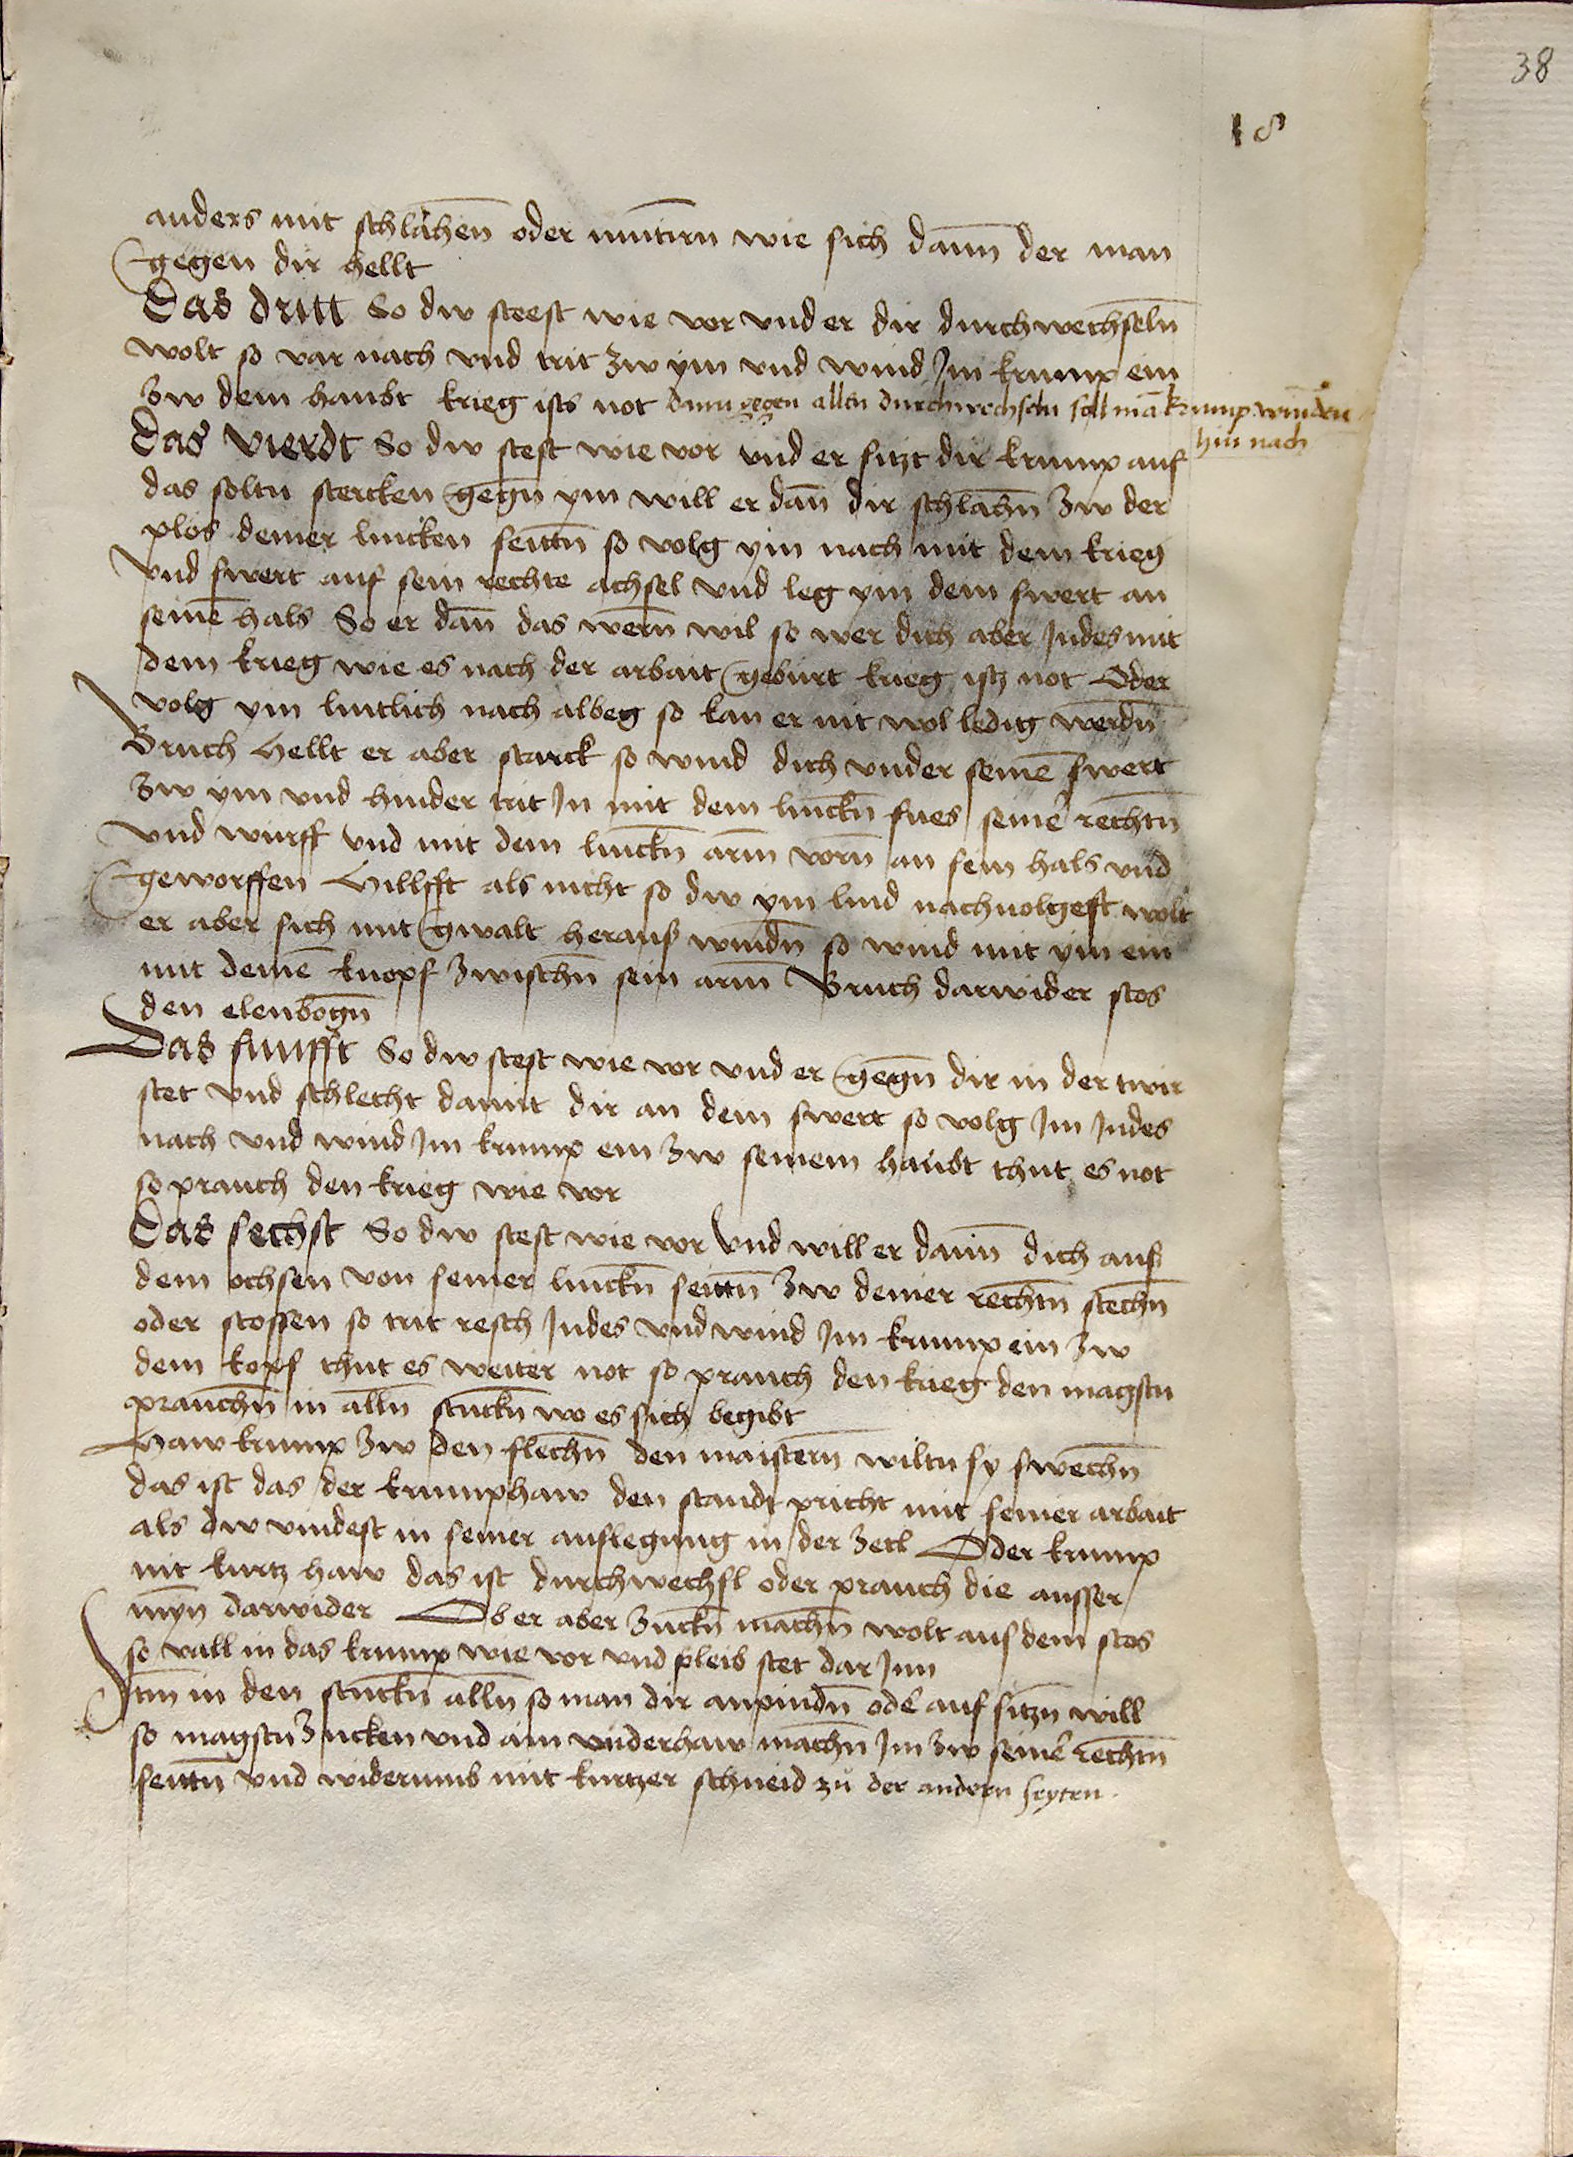 38
18
anders mit schlahen̄ oder mūtirn wie sich dann̄ der man
gegen dir hellt
Das dritt So dw steest wie vor vnd er dir durchwechseln̄
wolt so var nach vnd trit zw ym vnd wind Jm krump ein
zw dem haubt krieg ists not dann gegen allen durchwechseln soll mā krump winden
hin nach
Das vierdt So dw stest wie vor vnd er sitzt dir krump auf
das soltu stercken gegn̄ ym will er dan̄ dir schlahn̄ zw der
plos deiner lincken seittn̄ so volg ym nach mit dem krieg
vnd swert auf sein rechte achsel vnd leg ym dem swert an
seinē hals So er dan̄ das wern̄ wil so wer dich aber Jndes mit
dem krieg wie es nach der arbait geburt krieg istz not Oder
volg ym lintlich nach albeg so kan er nit wol ledig werdn̄
Bruch Hellt er aber starck so wind dich vnder seinē swert
zw ym vnd hinder trit Jn mit dem linckn̄ fues seinē rechtn̄
vnd wurff vnd mit dem linckn̄ arm̄ vorn̄ an sein hals vnd
geworffen Hillfft als nicht so dw ym lind nachuolgest wolt
er aber sich mit gwalt heraus windn̄ so wind mit ym ein
mit deinē knopf zwischn̄ sein arm̄ Bruch darwider stos
den elenbogn̄
Das funfft So dw stest wie vor vnd er gegn̄ dir in der twir
stet vnd schlecht damit dir an dem swert so volg Jm Jndes
nach vnd wind Jm krump ein zw seinem haubt thut es not
so prauch den krieg wie vor
Das sechst So dw stest wie vor vnd will er dann̄ dich aus
dem ochsen von seiner linckn̄ seittn̄ zw deiner rechtn̄ stechn̄
oder stossen so trit resch Jndes vnd wind Jm krump ein zw
dem kopf thut es weiter not so prauch den krieg den magstu
prauchn̄ in alln̄ stuckn̄ wo es sich begibt
Haw krump zw den flechn̄ den maistern̄ wiltu sy swechn̄
das ist das der krumphaw den standt pricht mit seiner arbait
als dw vindest in seiner auslegung in der zetl Oder krump
nit kurtz haw das ist durchwechsl oder prauch die ausser
myn̄ darwider Ob er aber zuckn̄ machn̄ wolt aus dem stos
so vall in das krump wie vor vnd pleib stet dar Jnn
Jtm̄ in den stuckn̄ alln̄ so man dir anpindn̄ odē auf sitzn̄ will
so magstu zucken vnd ain vnderhaw machn̄ Jm zw seinē rechtn̄
seittn̄ vnd widerumb mit kurtzer schneid zů der andern seyten.